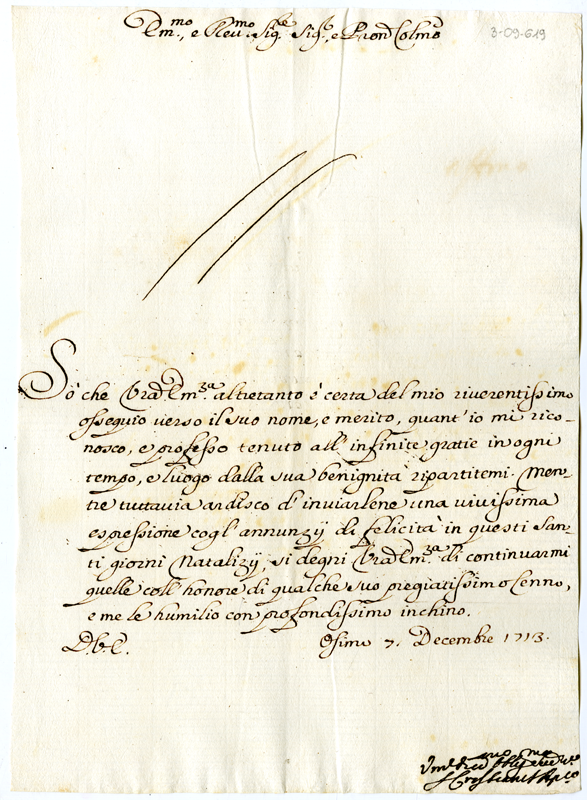 Em.mo, e Rev.mo Sig.re Sig.r, e Pron Colmo
3-09-619
Sò che Vrã Em.za altretanto è certa del mio riverentissimo
ossequio verso il suo nome, e merito, quant'io mi rico-
nosco, e professo tenuto all' infinite gratie in ogni
tempo, e luogo dalla sua benignità ripartitemi. Men-
tre tuttavia ardisco d'inviarlene una vivissima
espressione cogl'annunzij di felicità in questi San-
ti giorni Natalizij, si degni Vrã Em.za di continuarmi
quelle coll'honore di qualche suo pregiatissimo Cenno,
e me le humilio con profondissimo inchino.
D.V.E. Osimo 7. Decembre 1713.